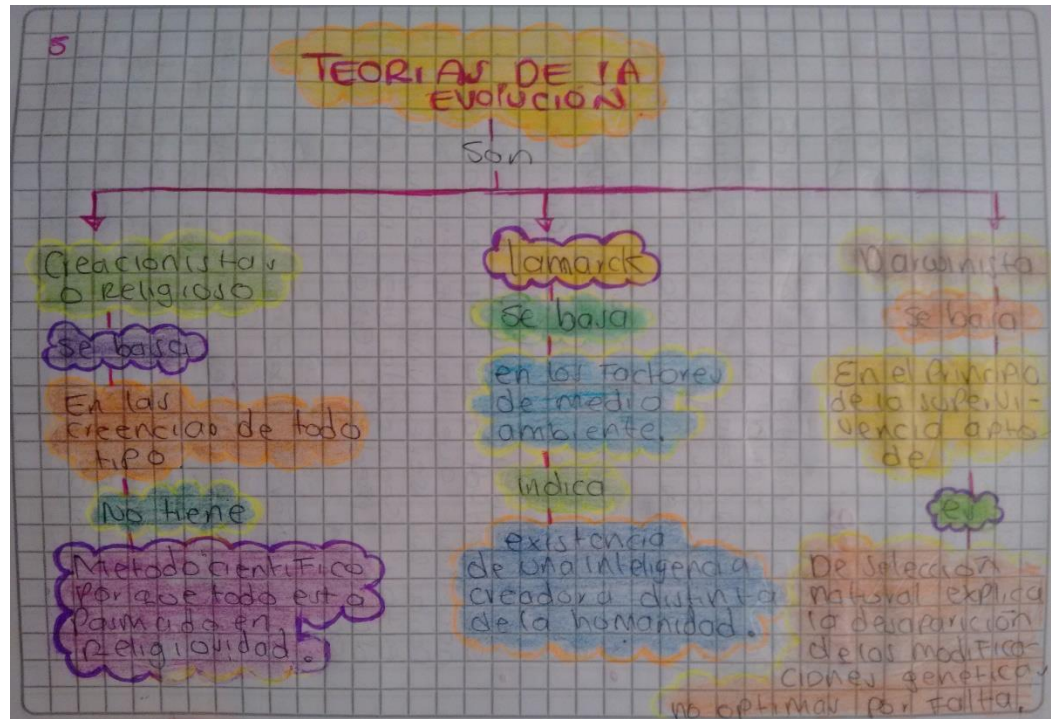 5
TEORIAS DE LA
EVOLUCIÓN
Son
Creacionistas
o Religioso
Se basa
En las
creencias de todo
tipo.
No tiene
Metodo cientifico
Por que todo esta
Pasmado en
Religiosidad.
lamarck
Se basa
en los Factores
de medio
ambiente.
indica
existencia
de una inteligencia
creadora distinta
de la humanidad.
Darwinista
se basa
En el Principio
de la supervi-
vencia apto
de
es
De selección
natural explica
la desaparición
de las modifica-
ciones genéticas
no optimas por Faltta.